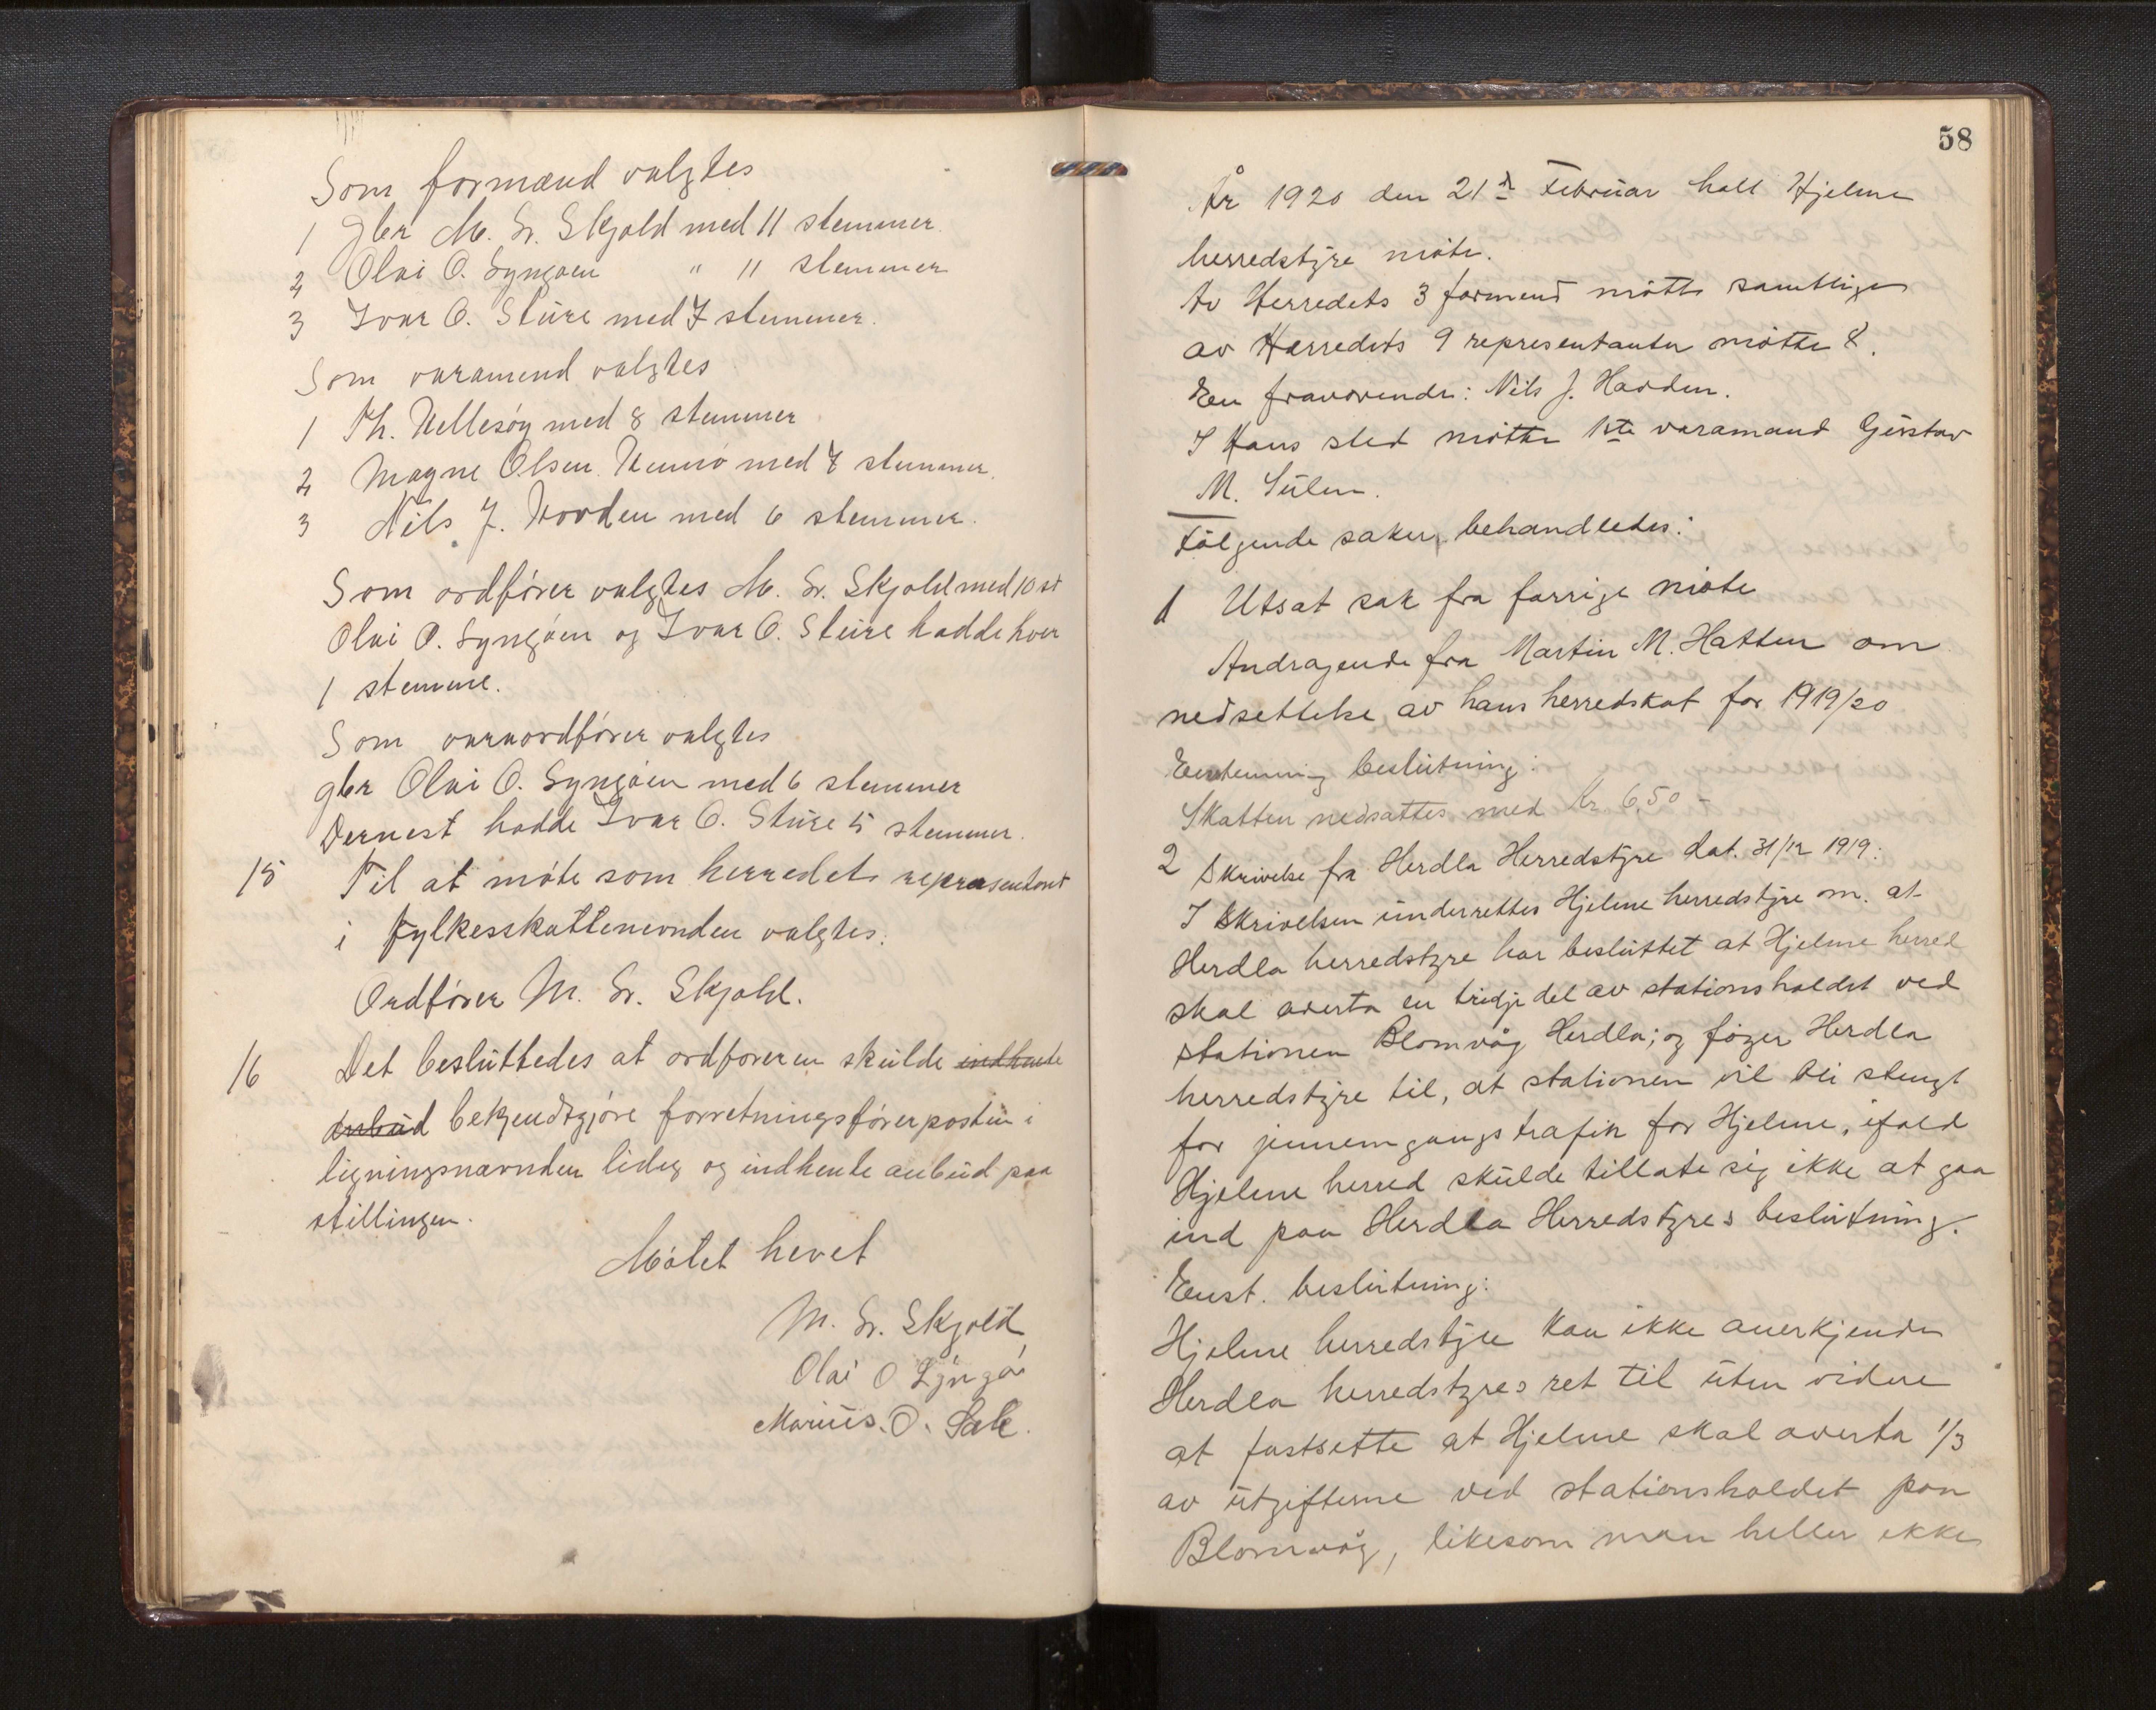 Som formænd valgtes
1 gbr M. Sr. Skjold med 11 stemmer.
2 Olai O. Lyngøen " 11 stemmer
3 Ivar O. Stúre med 7 stemmer.
Som varamend valgtes
1 Th. Hellesøy med 8 stemmer
2 Magne Olsen med 7 stemmer.
3 Nils J. med 6 stemmer.
Som ordfører valgtes M. Sr. Skjold med 10 st
Olai O. Lyngøen og Ivar O. Stúre hadde hver
1 stemme.
Som varaordfører valgtes
gbr Olai O. Lyngøen med 6 stemmer
Dernest hadde Ivar O. Stúre 5 stemmer.
15 Til at møte som herredets representant
i fylkesskattenevnden valgtes:
Ordfører M. Sr. Skjold.
16 Det beslúttedes at ordføreren skúlde indhente
anbúd bekjendtgjøre forretningsførerposten i
ligningsnævnden ledig og indhente anbúd paa
stillingen.
Møtet hevet
M. Sr. Skjold
Olai O Lyngø
Mariús. O. Sæle.
58
År 1920 den 21de Februar holt Hjelme
herredstyre møte.
Av Herredets 3 formend møtte samtlige
av Herredets 9 representanter møtte 8.
En fraværende: Nils J.
I Hans sted møtte 1ste varamand Gústav
M. Súlen.
Følgende saker behandledes:
1 Utsat sak fra forrige møte
Andragende fra Martin M. Hatten om
nedsettelse av hans herredskat for 1919/20
Eenstemmig beslútning:
Skatten nedsattes med Kr 6,50 -
2 Skrivelse fra Herdla Herredstyre dat. 31/12 1919:
I Skrivelsen únderrettes Hjelme herredstyre om. at
Herdla herredstyre har beslúttet at Hjelme herred
skal overta en tridje del av stationsholdet ved
stationen Blomvåg Herdla; og føger Herdla
herredstyre til, at stationen vil bli stengt
for jennemgangstrafik for Hjelme, ifald
Hjelme herred skúlde tillate sig ikke at gaa
ind paa Herdla Herredstyres beslútning.
Enst. beslútning:
Hjelme herredstyre kan ikke anerkjende
Herdla herredstyres ret til úten videre
at fastsette at Hjelme skal overta 1/3
av útgifterne ved stationsholdet paa
Blomvåg, likesom man heller ikke